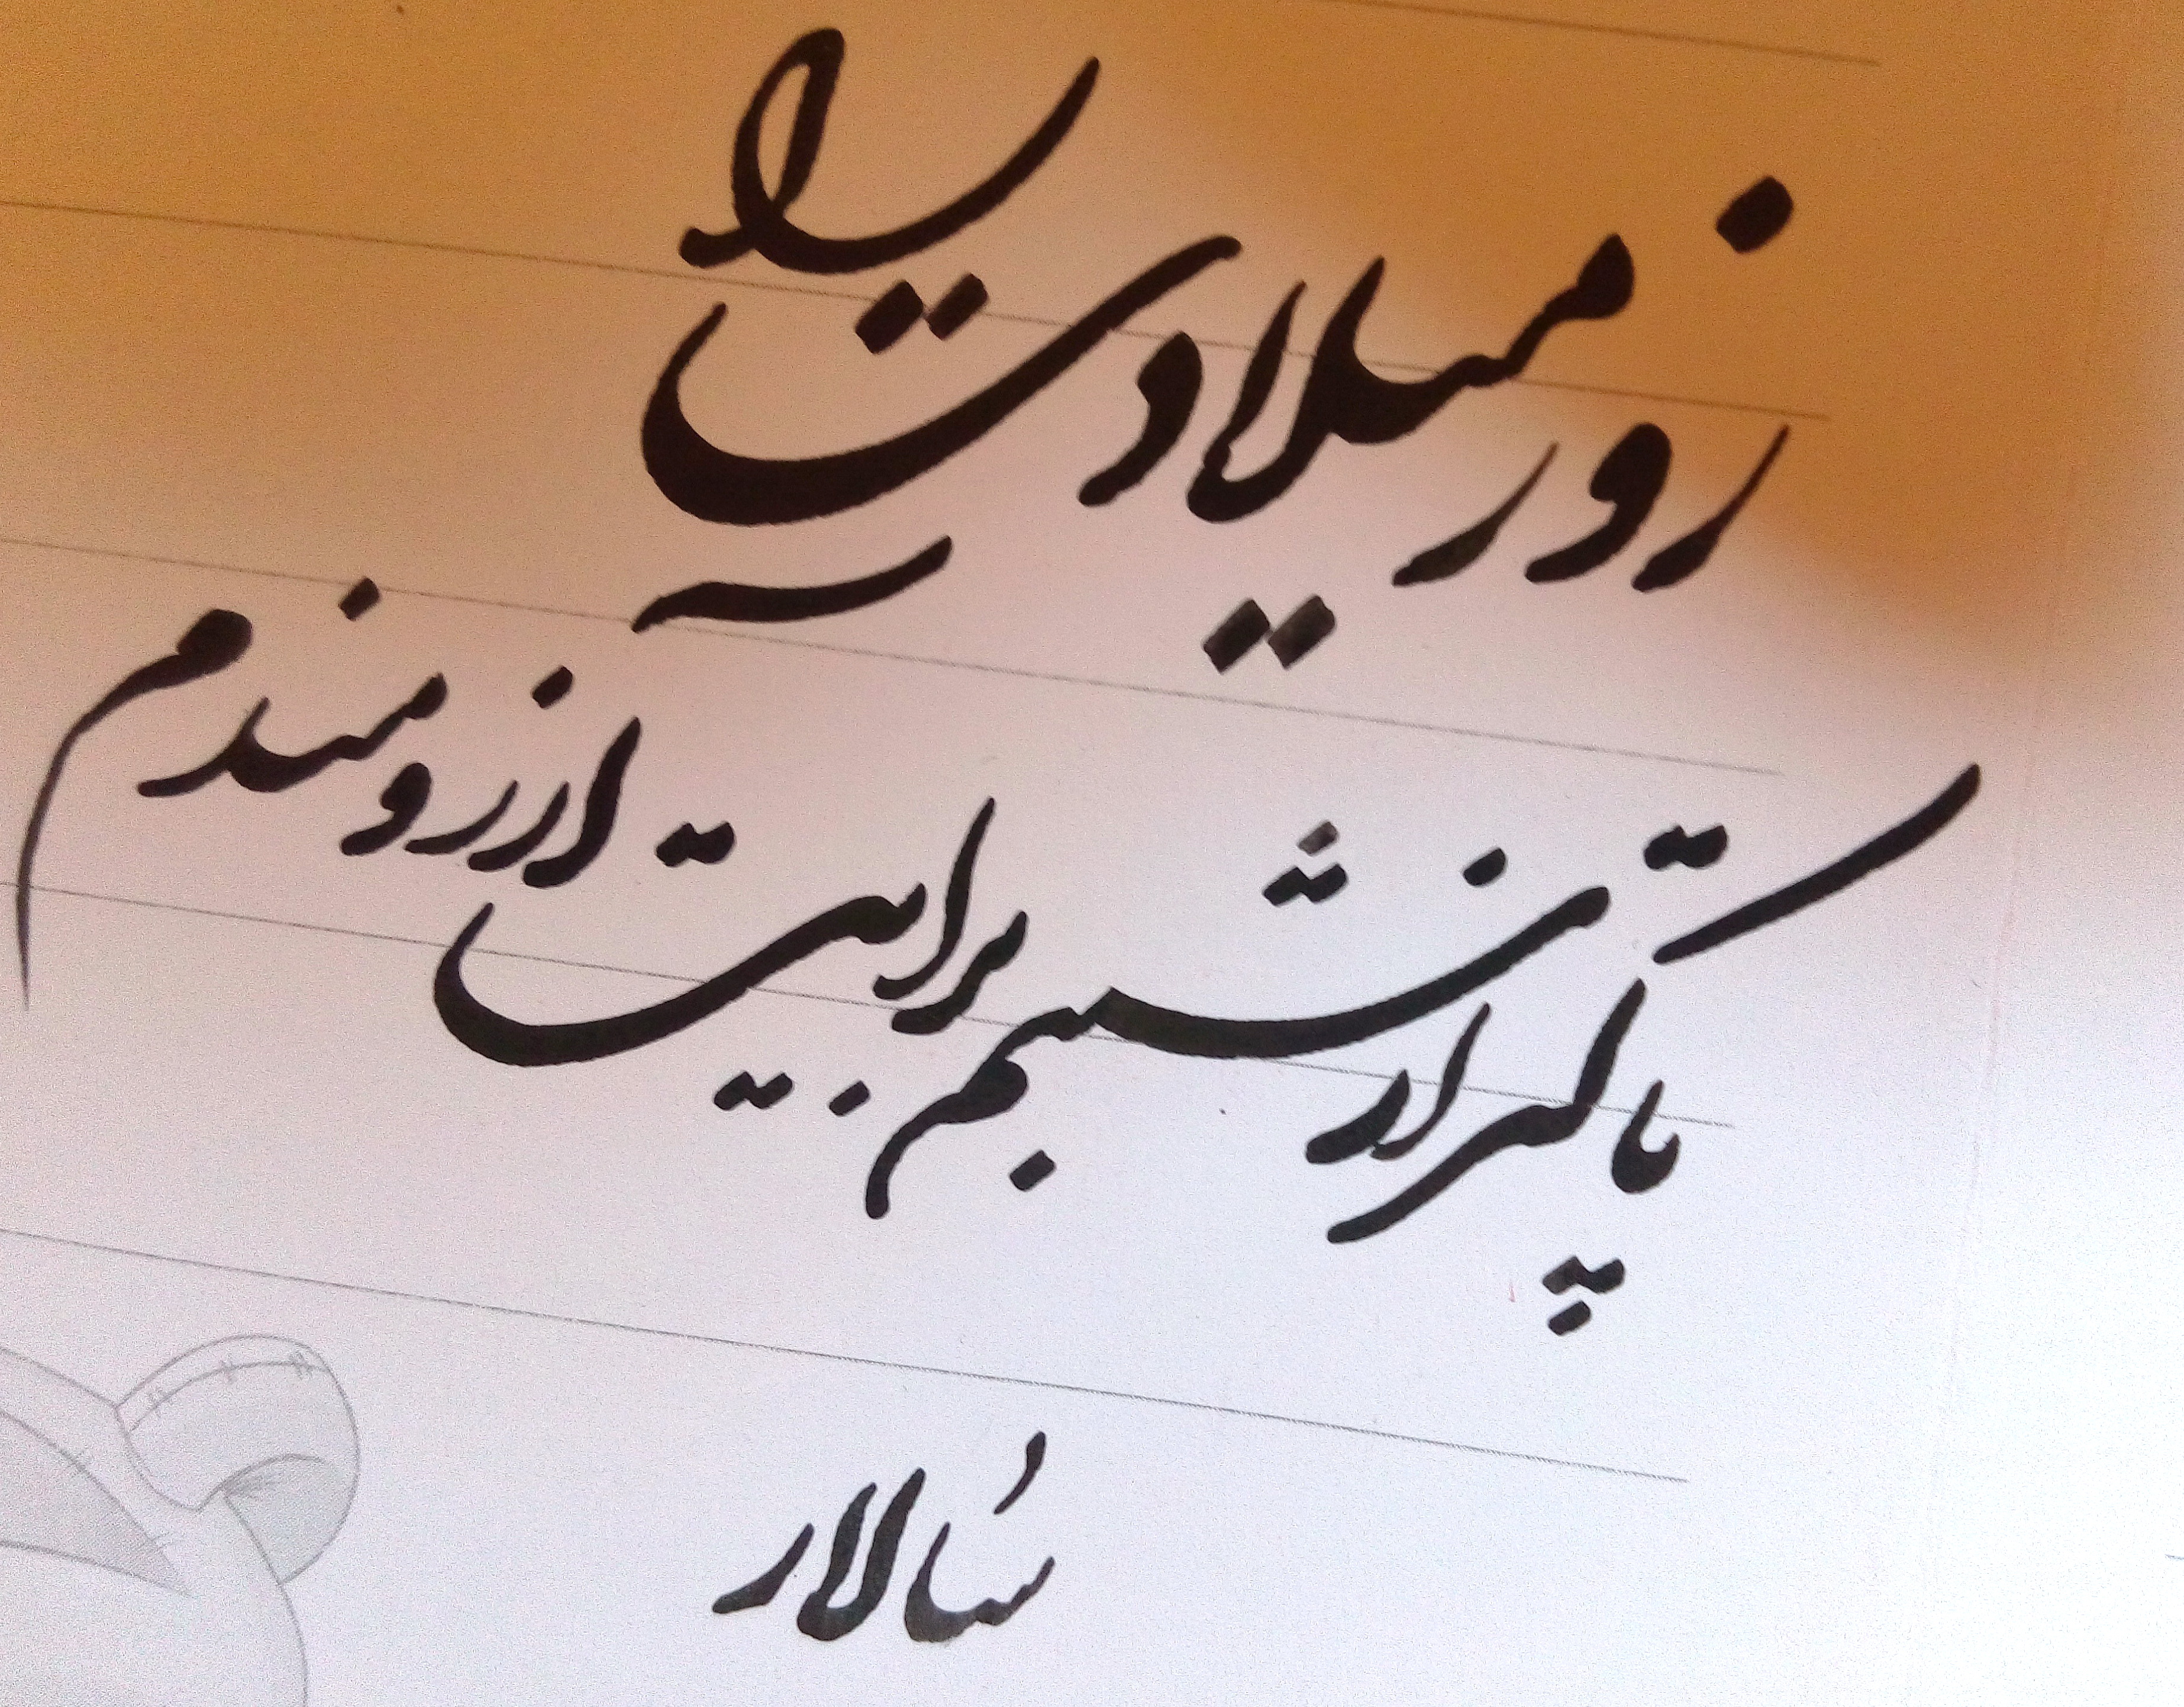 روز میلادت را
پاکتر از شبنم برایت آرزومندم
سالار